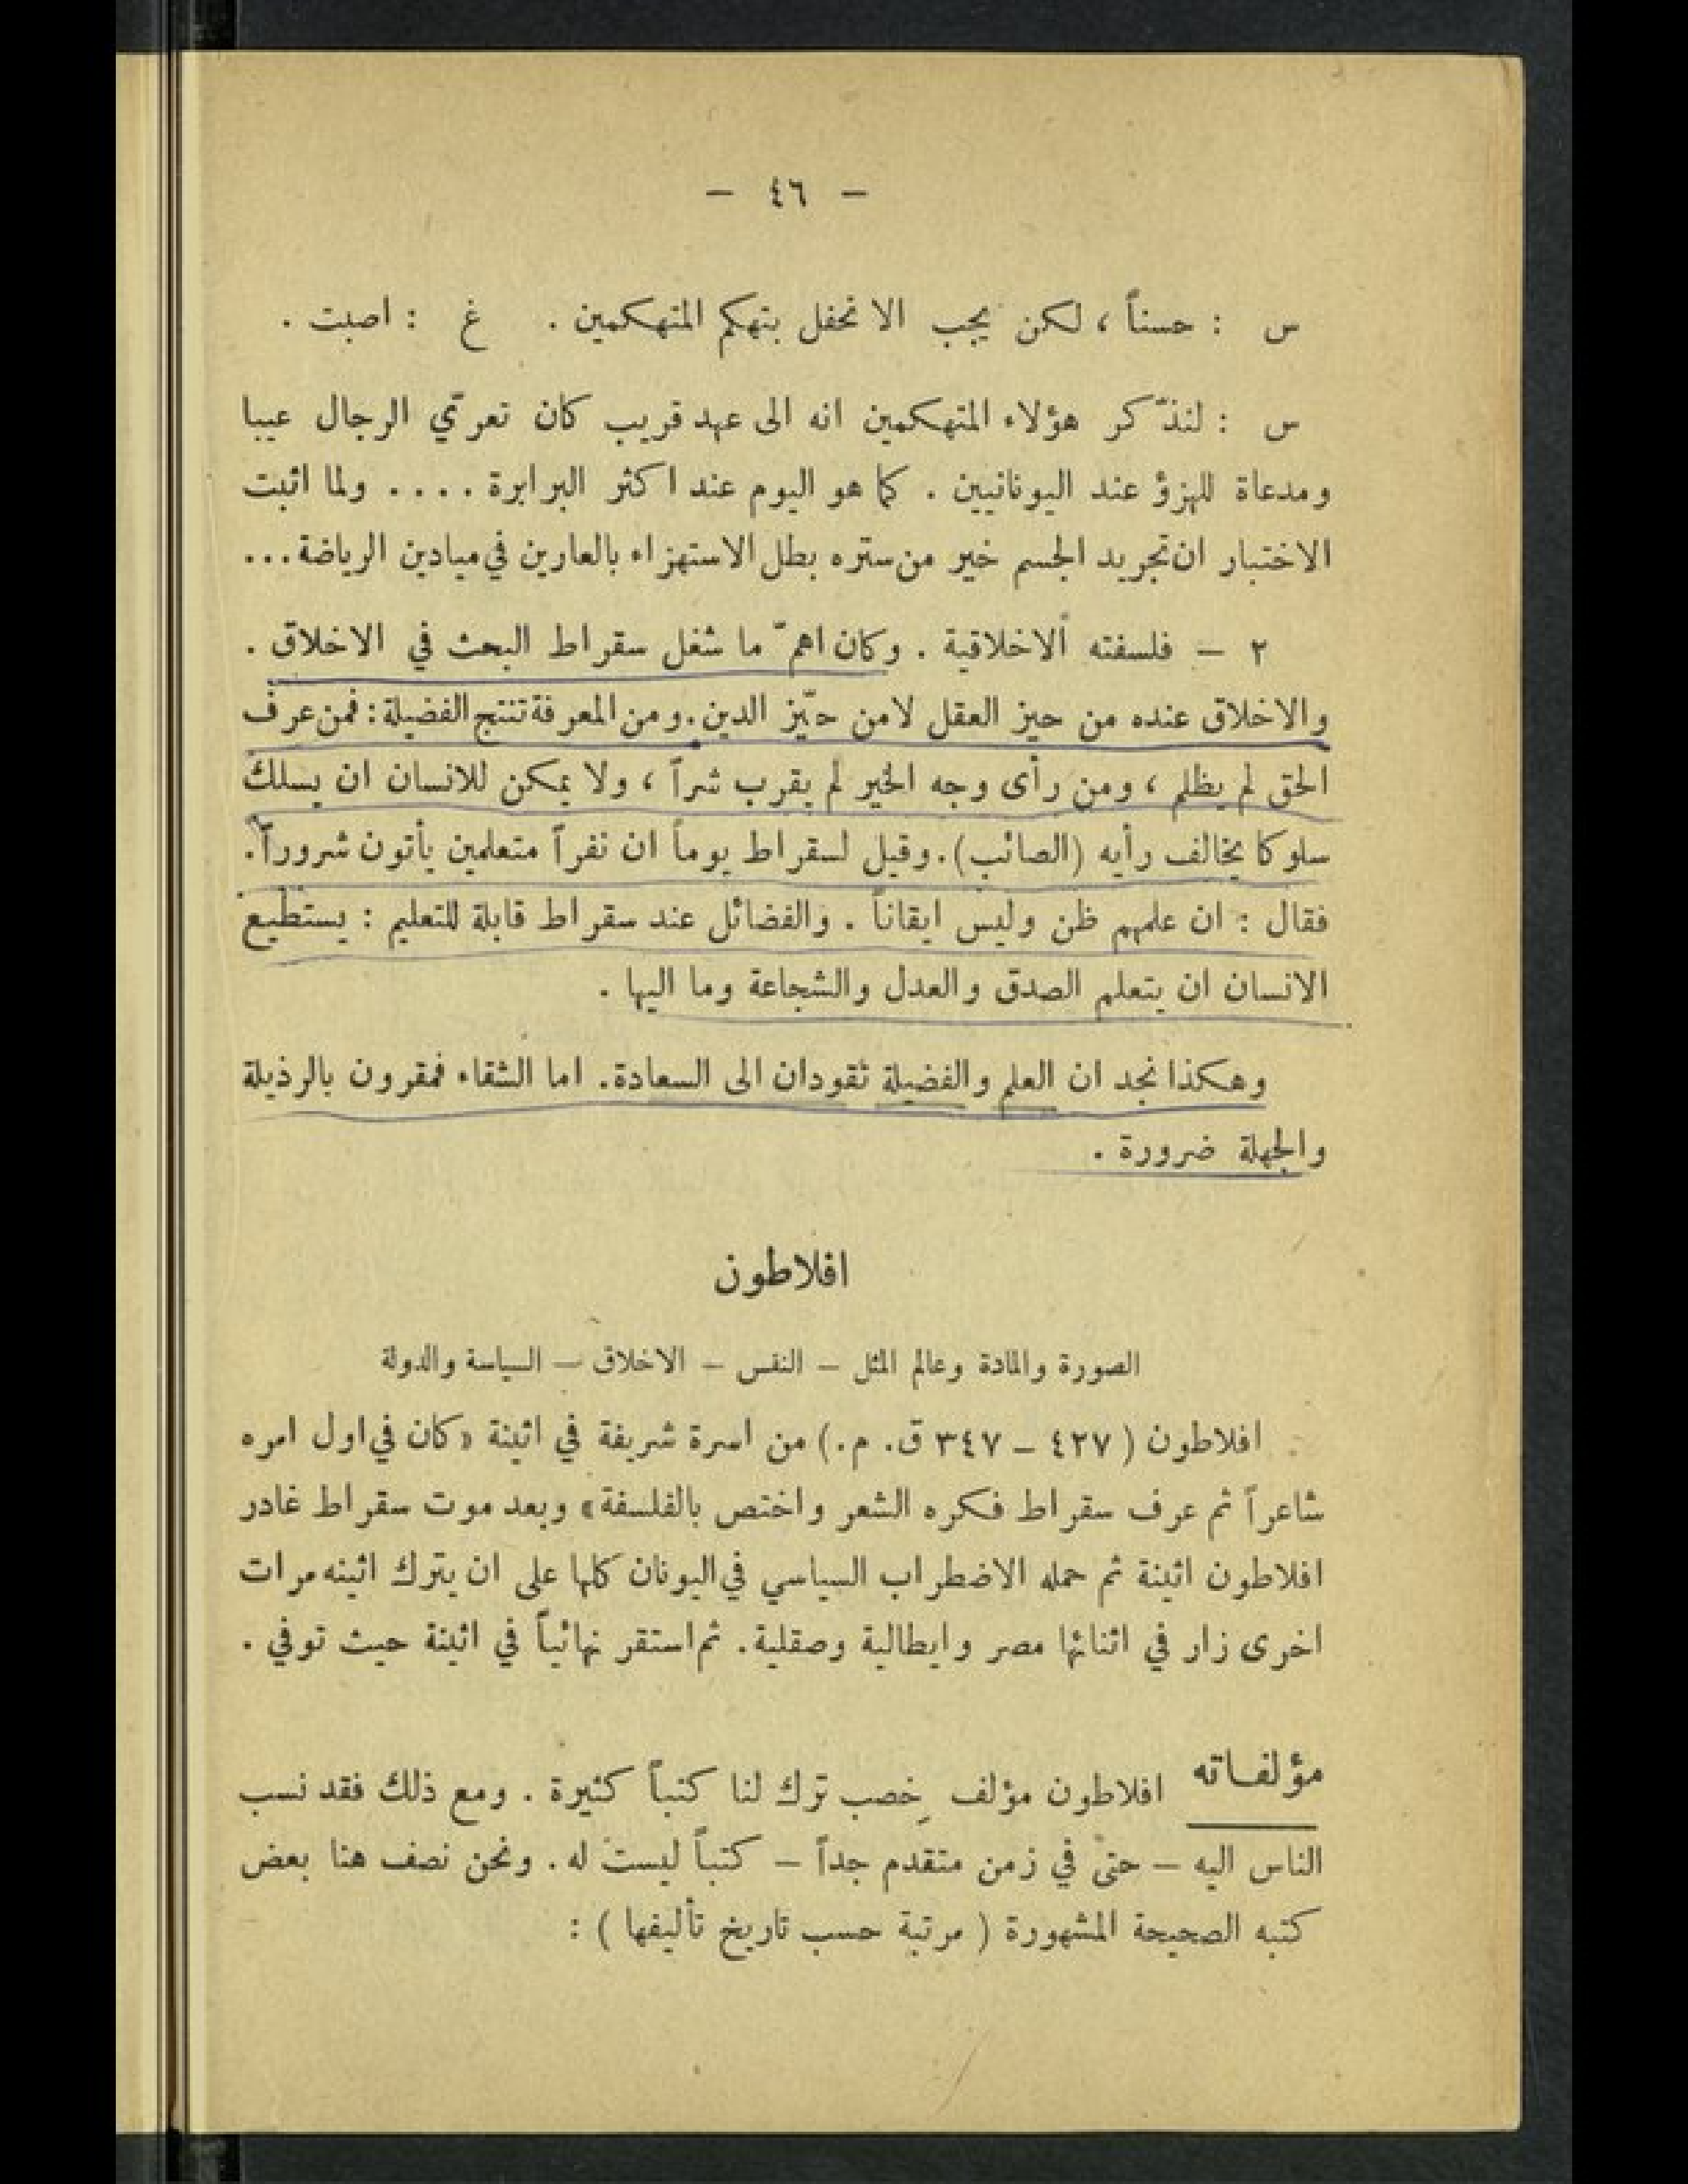 — ٤٦ —
س : حسناً ، لكن يجب الا نحفل بتهكم المتهكمين . غ : اصبت .
س : لنذّكر هؤلاء المتهكمين انه الى عهد قريب كان تعرّي الرجال عيبا
ومدعاة للهزؤ عند اليونانيين . كما هو اليوم عند اكثر البرابرة .... ولما اثبت
الاختبار ان تجريد الجسم خير من ستره بطل الاستهزاء بالعارين في ميادين الرياضة...
٢ – فلسفته الاخلاقية . وكان اهمّ ما شغل سقراط البحث في الاخلاق .
والاخلاق عنده من حيز العقل لا من حيّز الدين. ومن المعرفة تنتج الفضيلة: فمن عرف
الحق لم يظلم ، ومن رأى وجه الخير لم يقرب شراً ، ولا يمكن للانسان ان يسلك
سلوكا يخالف رأيه (الصائب). وقيل لسقراط يوماً ان نفراً متعلمين يأتون شروراً.
فقال : ان علمهم ظن وليس ايقاناً . والفضائل عند سقراط قابلة للتعليم : يستطيع
الانسان ان يتعلم الصدق والعدل والشجاعة وما اليها .
وهكذا نجد ان العلم والفضيلة تقودان الى السعادة. اما الشقاء فمقرون بالرذيلة
والجهلة ضرورة .
افلاطون
الصورة والمادة وعالم المثل – النفس – الاخلاق – السياسة والدولة
افلاطون ( ٤٢٧ – ٣٤٧ ق. م.) من اسرة شريفة في اثينة «كان في اول امره
شاعراً ثم عرف سقراط فكره الشعر واختص بالفلسفة» وبعد موت سقراط غادر
افلاطون اثينة ثم حمله الاضطراب السياسي في اليونان كلها على ان يترك اثينه مرات
اخرى زار في اثنائها مصر وايطالية وصقلية. ثم استقر نهائياً في اثينة حيث توفي .
مؤلفاته افلاطون مؤلف خِصب ترك لنا كتباً كثيرة . ومع ذلك فقد نسب
الناس اليه – حتى في زمن متقدم جداً – كتباً ليست له . ونحن نصف هنا بعض
كتبه الصحيحة المشهورة ( مرتبة حسب تاريخ تأليفها ) :